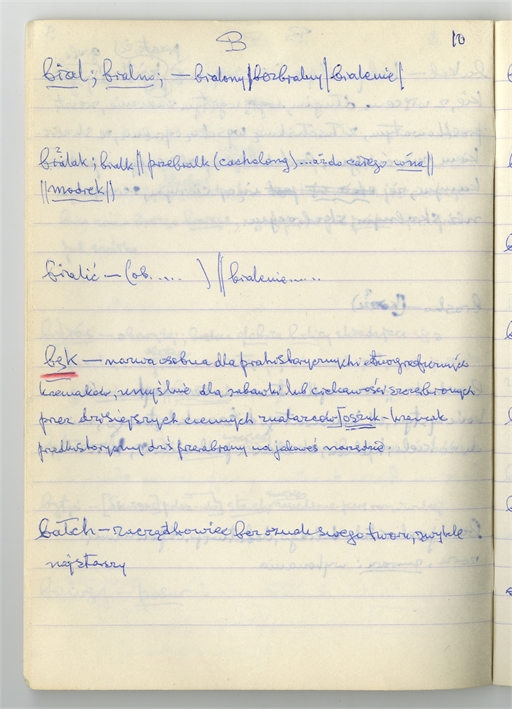 B 10
biał; bialno; – białony/bezbialny/bialenie/
białak; bialk // przebialk (cacholong)... aż do całego wśna //
// modrek //
bialić – (ob..... ) // bialenie.....
bęk – nazwa osobna dla prahistorycznych i etnograficznych
krzemaków, umyślnie dla zabawki lub ciekawości szczerbionych
przez dzisiejszych ciemnych znalazców [oszuk-wrak
przedhistoryczny dziś przerabiany na jakoweś narzędzie.
bałch – zaczątkowiec bez oznak swego tworu, zwykle
najstarszy